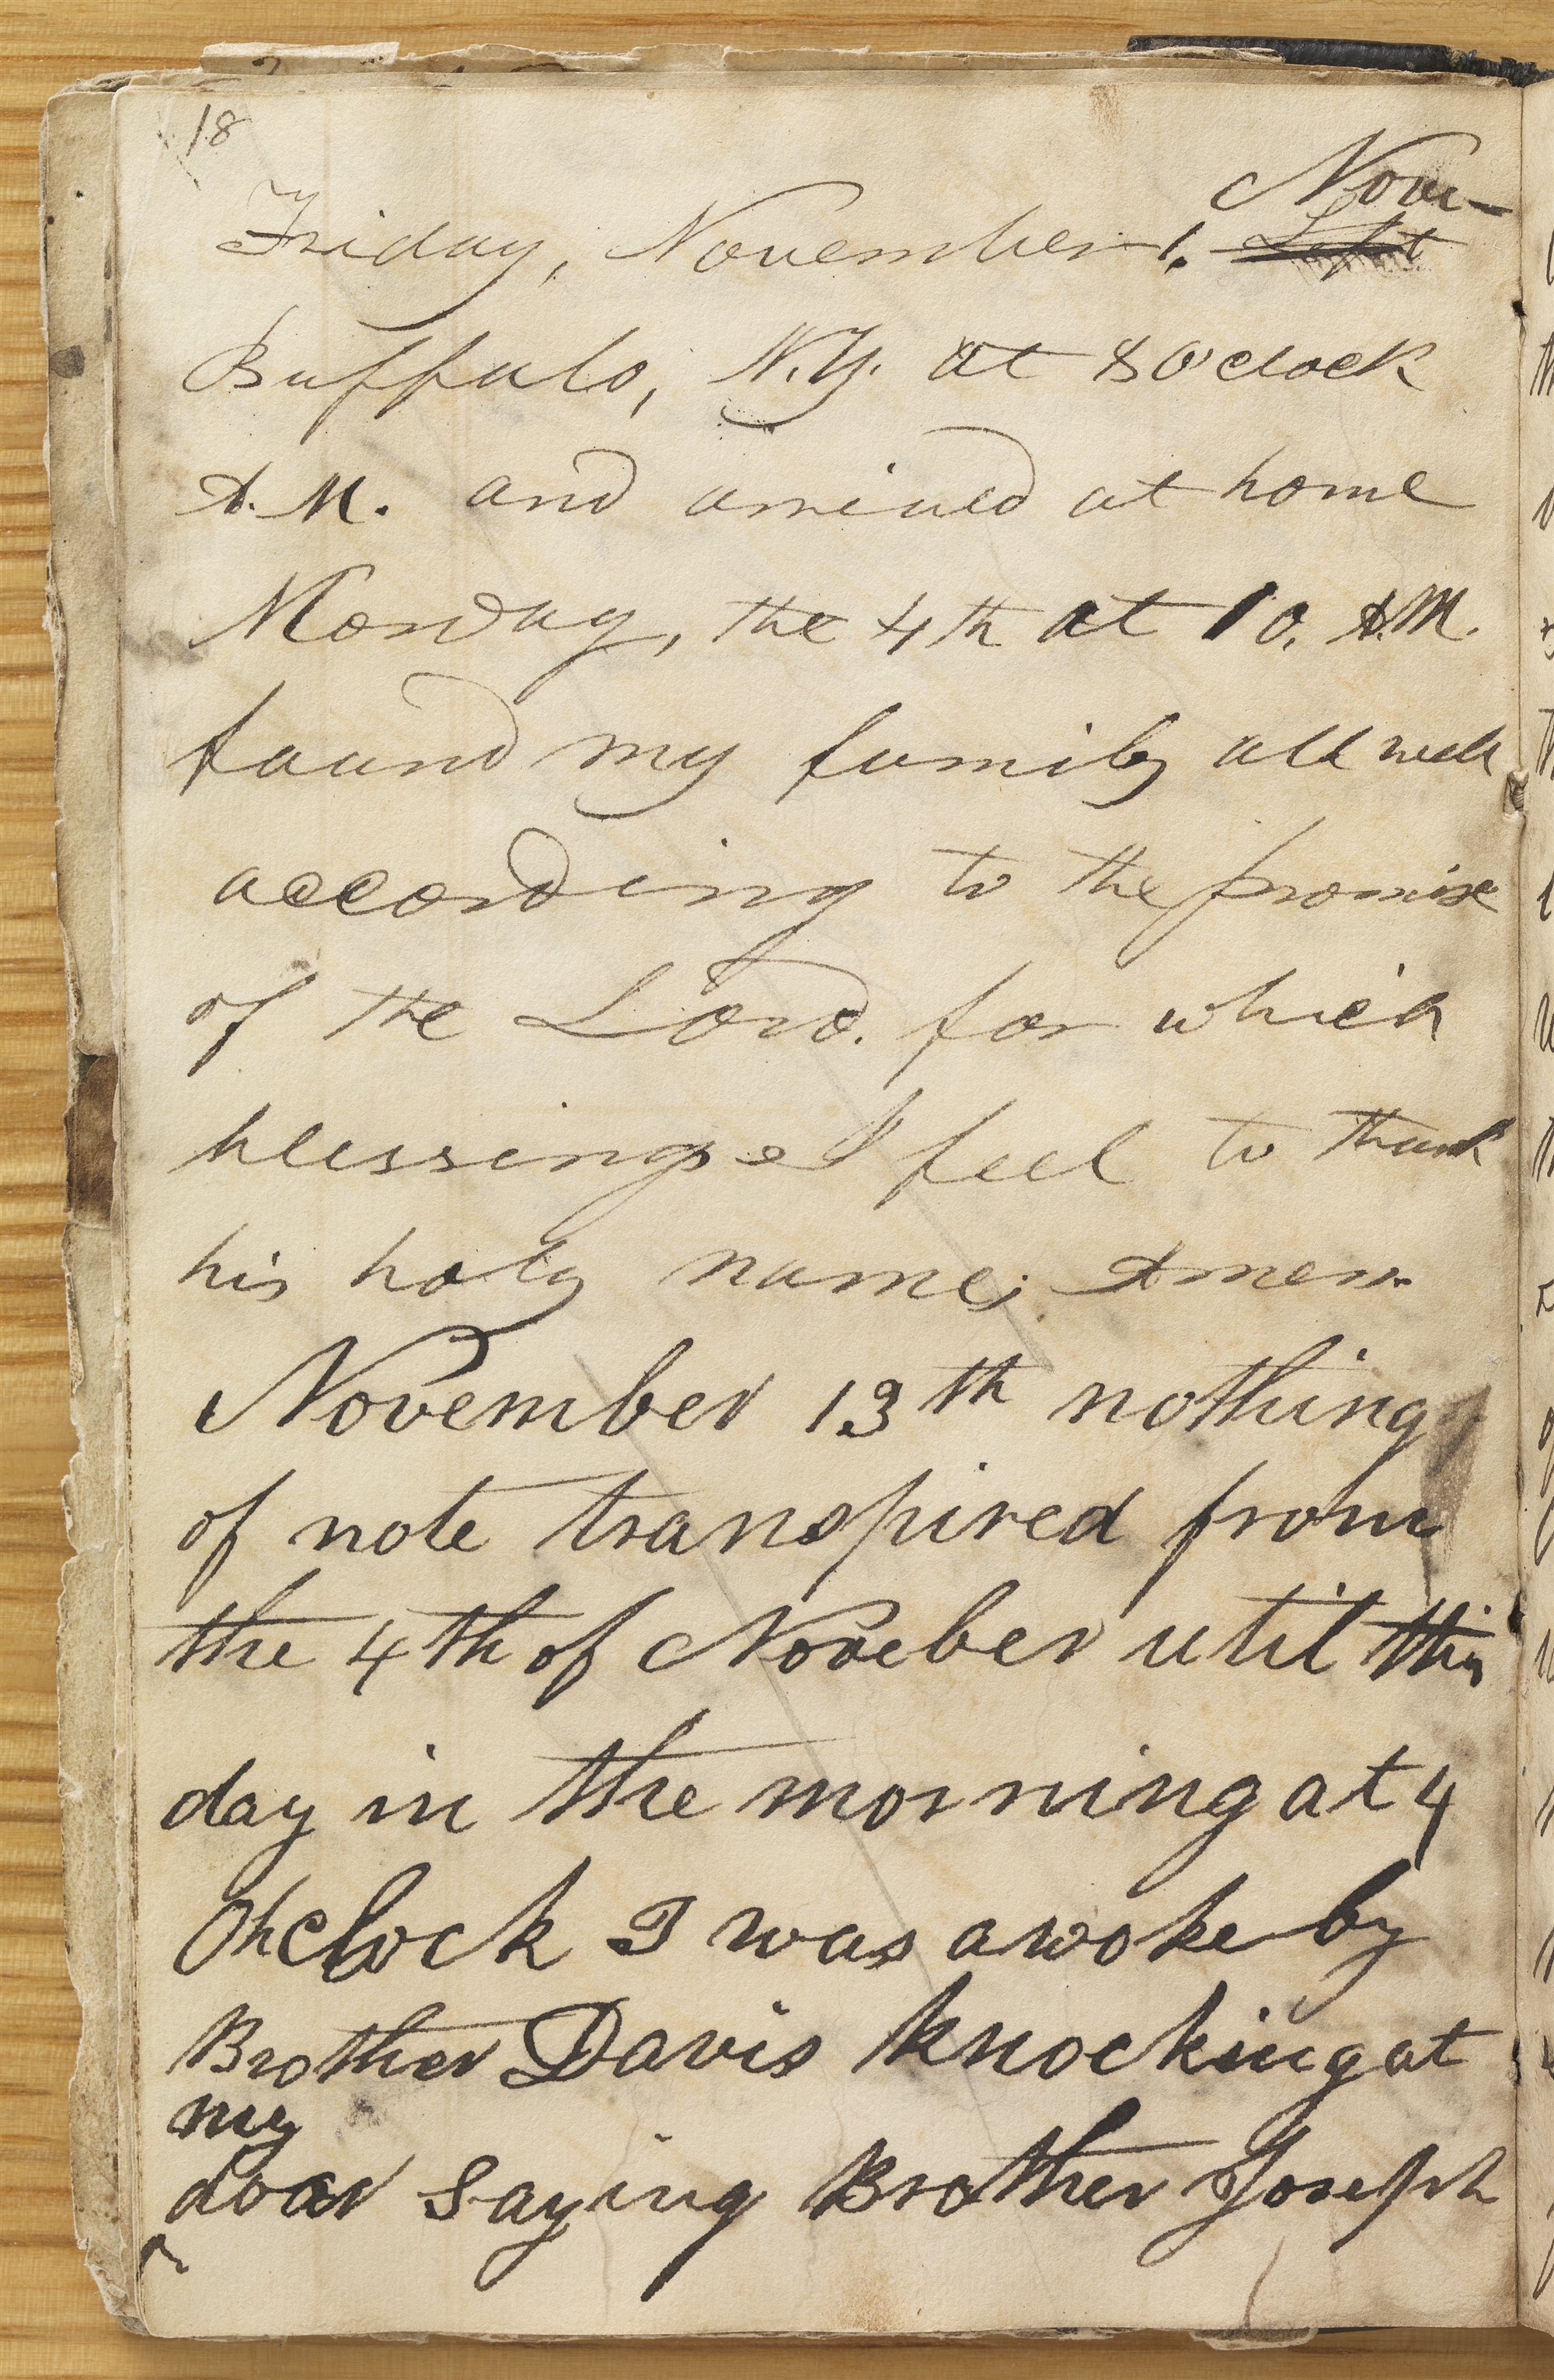 18
Nove-
Friday, November 1. Left
Buffalo, N.Y. at 8 O'clock
A.M. and arrived at home
Monday, the 4th at 10, A.M.
found my family all well
according to the promise
of the Lord. for which
blessings I feel to thank
his holy name; Amen.
November 13th nothing
of note transpired from
the 4th of Noveber util this
day in the morning at 4
Oh clock I was awoke by
Brother Davis knocking at
my
door saying Brother Joseph